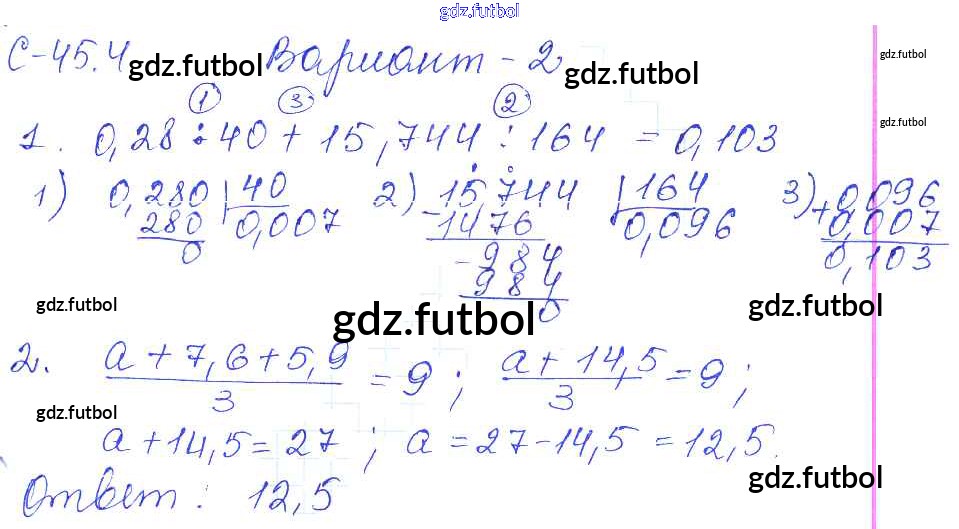 gdz.futbol
С-45.4 gdz.futbol Вариант - 2 gdz.futbol gdz.futbol
① ③ ②
1. 0,28 : 40 + 15,744 : 164 = 0,103 gdz.futbol
1) 0,280 | 40 2) 15,744 | 164 3) 0,096
280 0,007 - 1476 0,096 + 0,007
0 - 984 0,103
984
gdz.futbol gdz.futbol 0 gdz.futbol
2. a + 7,6 + 5,9 / 3 = 9 ; a + 14,5 / 3 = 9 ;
gdz.futbol
a + 14,5 = 27 ; a = 27 - 14,5 = 12,5.
Ответ : 12,5 gdz.futbol